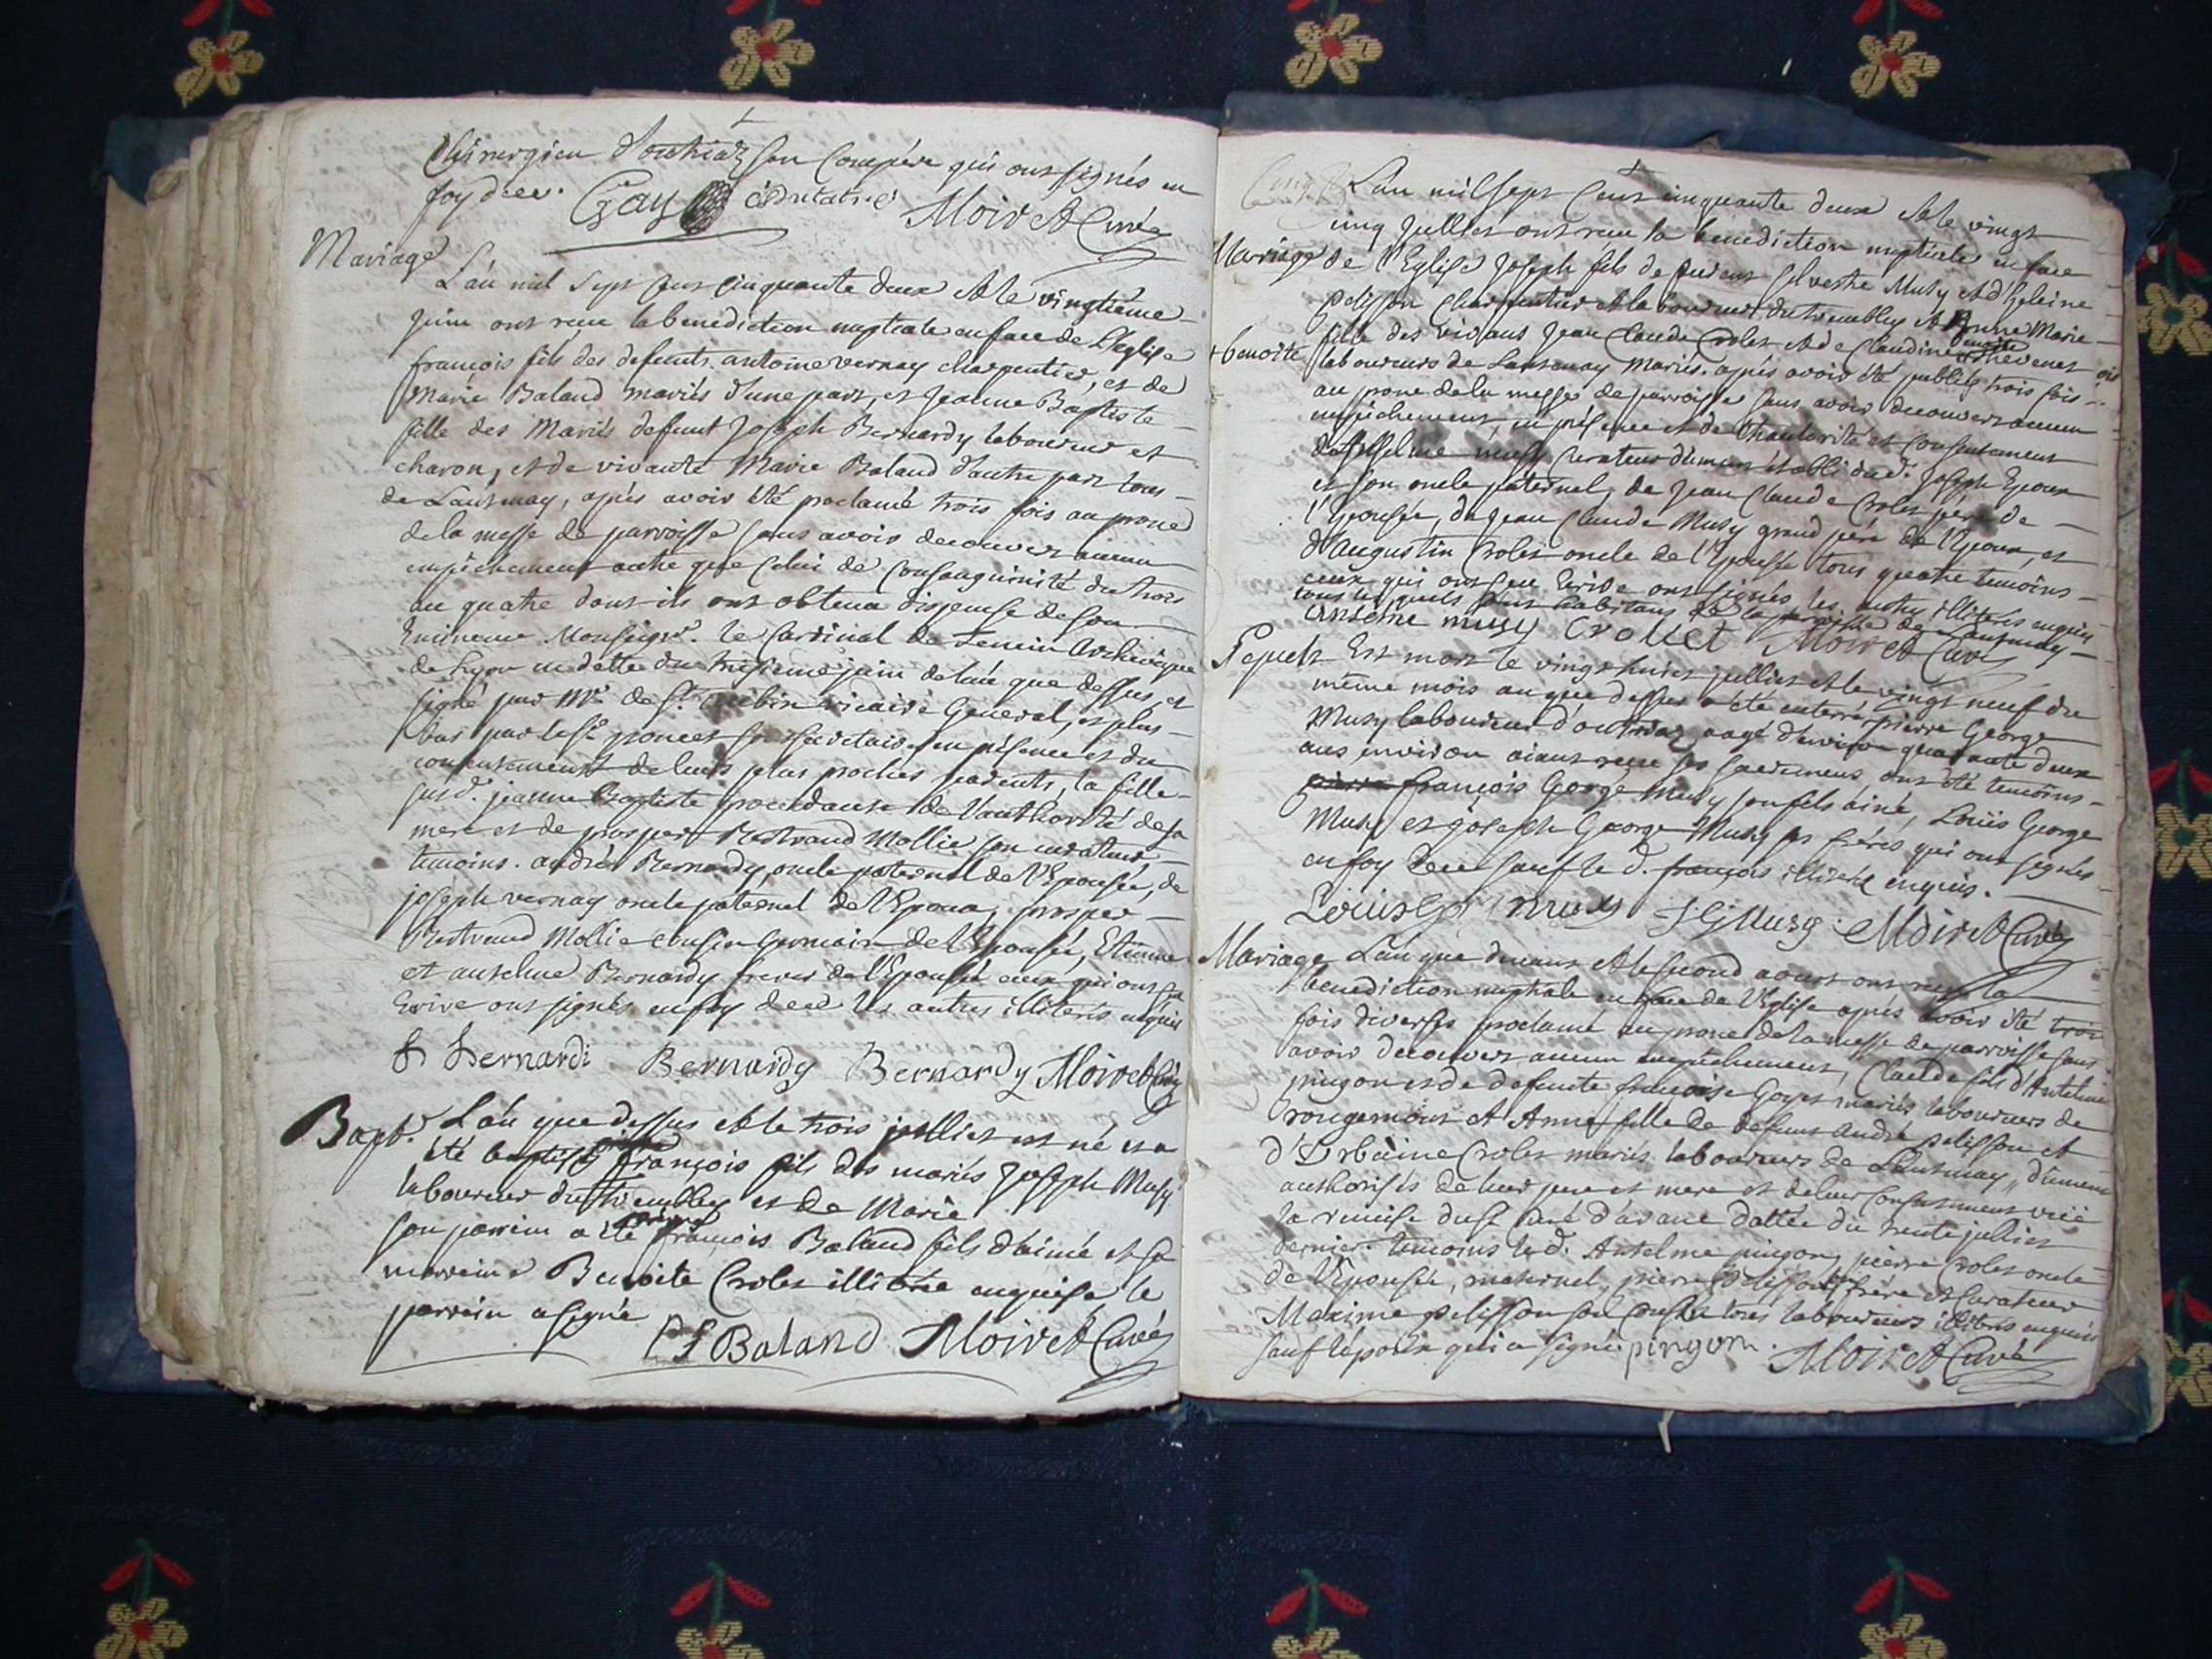 Chirurgien d'outriaz son Compére qui ont signés en
foy de ce. Gay Moiret Curé
Mariage
L'an mil sept cens cinquante deux et le vingtieme
juin ont reçu la benediction nuptiale en face de L'eglise
françois fils des defunts antoine vernay charpentier, et de
Marie Baland mariés d'une part, et Jeanne Baptiste
fille des Mariés defunt Joseph Bernardy laboureur et
charon, et de vivante Marie Baland d'autre part tous
de Lantenay, aprés avoir été proclamé trois fois au prone
de la messe de parroisse sans avoir decouvers aucun
empéchement autre que celui de consanguinité du trois
au quatre dont ils ont obtenu dispense de son
Eminence Monseignr. le Cardinal de Tencin Archevéque
de Lyon en datte du treisieme juin de l'an que dessus et
signé par Mr de St. vicaire General, et plus
bas par le Sr secretaire en présence et du
consentement de leurs plus proches parents, la fille
susd. jeanne Baptiste procedante de l'authorité de sa
mere et de prosper Bertrand Mollie son curateur
temoins. andré Bernardy oncle paternel de l'Epousée, de
joseph vernay oncle paternel de l'Epoux, prosper
Bertrand Mollie cousin germain de l'Epousée, Etienne
et anselme Bernardy freres de l'Epousée ceux qui ont su
Ecrire ont signés en foy de ce les autres illiterés enquis
Bernardi Bernardy Bernardy Moiret Curé
Bapt. L'an que dessus et le trois juilliet est né et a
été baptisé françois fils des mariés Joseph Musy
laboureur du Trembley et de Marie
son parrein a été françois Baland fils d'aimé et sa
marreine Benoite Crolet illitérée enquise le
parrein a signé
Baland Moiret Curé
L'an mil sept Cent cinquante deux et le vingt
cinq Juillet ont reçu la benediction nuptiale en face
Mariage de l'Eglise Joseph fils de Silvestre Musy et d'heleine
Pelisson Charpentier et laboureur du Trembley et Anne Marie
+ benoite fille des vivans Jean Claude Crolet et de Claudine benoite Thevenet
laboureurs de Lantenay Mariés. aprés avoir été publiés trois fois
au prone de la messe de parroisse sans avoir decouvers aucun
empéchement, en présence et de l'hauthorité et consentement
d'Anselme musy Curateur dûment établi dud. Joseph Epoux
et son oncle paternel, de Jean Claude Crolet pére de
l'Epousée, de Jean Claude Musy grand pére de l'Epoux, et
d'augustin Crolet oncle de l'Epouse tous quatre temoins
ceux qui ont su Ecrire ont signés les autres illiterés enquis
tous lesquels sont habitans de la parroisse de Lantenay
anselme musy Crollet Moiret Curé
Sepult. Est mort le vingt huict juilliet et le vingt neuf du
même mois an que dessus a été enterré pierre George
Musy laboureur d'outriaz, agé d'environ quarante deux
ans environ aiant reçu ses sacremens ont été temoins
pierre françois George Musy son fils ainé, Louis George
Musy et joseph George Musy ses fréres qui ont signés
en foy de ce sauf le d. françois illiteré enquis.
Louis G musy J G Musy Moiret Curé
Mariage L'an que devant et le second aoust ont reçu la
benediction nuptiale en face de l'Eglise aprés avoir été trois
fois diverses proclamé au prone de la messe de parroisse sans
avoir decouvers aucun empéchement, Claude fils d'Antelme
pingon et de defunte françoise Goyet mariés laboureurs de
rougemont et Anne fille de defunt André pelisson et
d'Urbaine Crolet mariés laboureurs de Lantenay, dûment
authorisés de leur pere et mere et de leur consentement veüe
la remise du Sr Curé d'avane dattée du trente juilliet
dernier. temoins led. Antelme pingon, pierre Crolet oncle
de l'Epousée, maternel, pierre Pelisson son frére et Curateur
Maxime pelisson son cousin tous laboureurs illiterés enquis
sauf l'époux qui a signé pingon. Moiret Curé